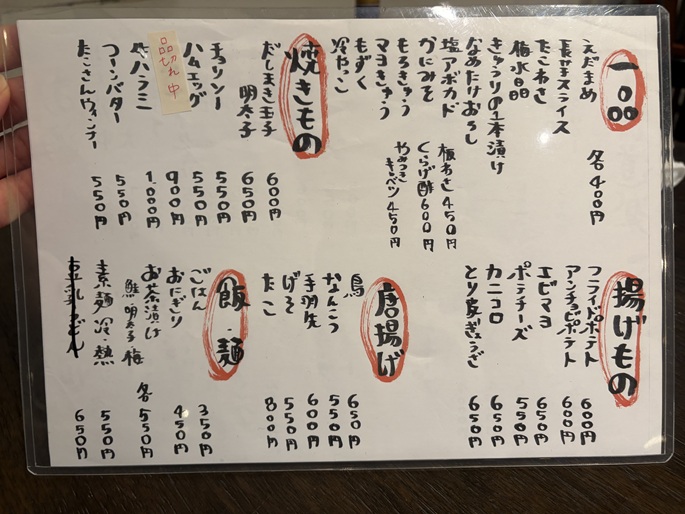 一品
えだまめ 各400円
長芋スライス
たこわさ
梅水晶
きゅうりの1本漬け
なめたけおろし
塩アボカド
かにみそ
もろきゅう
マヨきゅう
もずく
冷やっこ
板わさ 450円
くらげ酢 600円
やみつきキャベツ 450円
焼きもの
だしまき玉子 600円
明太子 650円
チョリソー 550円
ハムエッグ 550円
品切れ中 900円
牛ハラミ 1,000円
コーンバター 550円
たこさんウィンナー 550円
揚げもの
フライドポテト 600円
アンチョビポテト 600円
エビマヨ 650円
ポテチーズ 550円
カニコロ 650円
とり皮ぎょうざ 650円
唐揚げ
鳥 650円
なんこつ 550円
手羽先 600円
げそ 550円
たこ 800円
飯・麺
ごはん 350円
おにぎり 450円
お茶漬け 各550円
鮭 明太子 梅
素麺 冷・熱 550円
650円